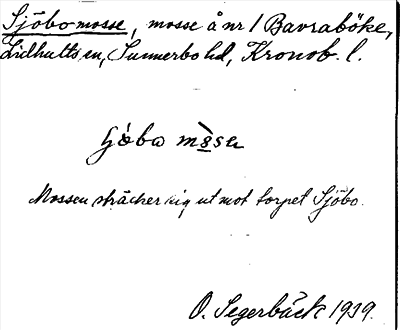 Sjöbomosse, mosse å nr 1 Bavraböke,
Lidhults sn, Sunnerbo hd, Kronob. l.
mosse
Mossen sträcker sig ut mot torpet Sjöbo.
O. Segerbäck 1939.